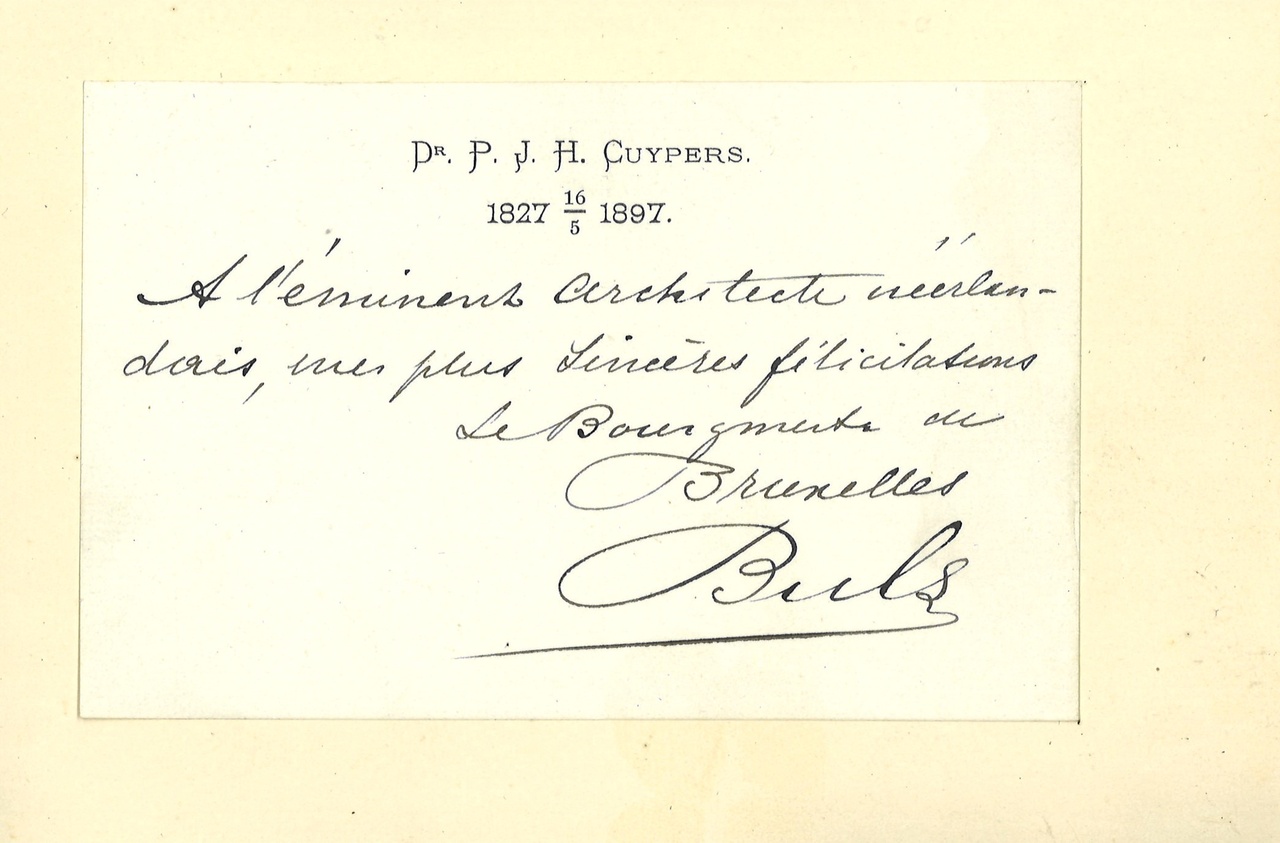 Dr. P. J. H. Cuypers.
1827 16/5 1897.
A l'éminent Architecte néerlan-
dais, mes plus sincères félicitations
Le Bourgmestre de
Bruxelles
Buls